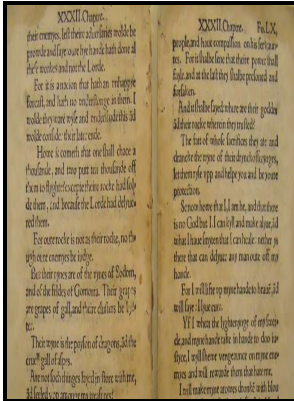 XXXII. Chapter.
their enemyes, lest their adversaries wolde be
prowde and saye: oure hye hande hath done all
these workes and not the Lorde.
For it is a nacion that hath an unhappye
forcast, and hath no understonge in them. I
wolde they were wyse and understode this ād
wolde consider their later ende.
Howe is cometh that one shall chace a
thousande, and two putt ten thousande off
them to flyghte? excepte theire rocke had sol-
de them, and because the Lorde had delyue-
red them.
For oure rocke is not as their rocke, no tho
ugh oure enemyes be iudge.
But their vynes are of the vynes of Sodom,
and of the feldes of Gomorra. Their grapes
are grapes of gall, and theire clusters be bytt
ter.
Their wyne is the poyson of dragons, ād the
cruell gall of aspes.
Are not soch thinges layed in store with me,
ād sealed vp amonge my treasures?
XXXII. Chapter. Fo. LX,
people, and haue compassion on his seruaun-
tes. For it shalbe sene that theire power shall
fayle, and at the last they shalbe presoned and
forsaken.
And it shalbe sayed: where are their goddes
ād their rocke wherein they trusted?
The fatt of whose sacrifices they ate and
drancke the wyne of their drynckofferynges,
let them ryse vpp and helpe you and be youre
proteccion.
Se now howe that I, I am he, and that there
is no God but I. I can kyll and make alyue, ād
what I haue smyten that I can heale: nether ys
there that can delyuer any man oute off my
hande.
For I will lifte vp myne hande to heauē, ād
will saye: I lyue euer.
Yf I whett the lyghtenynge of my swer-
de, and myne hande take in hande to doo iu-
styce, I wyll shewe vengeance on myne ene-
myes and will rewarde them that hate me.
I will make myne arowes dronke with blou